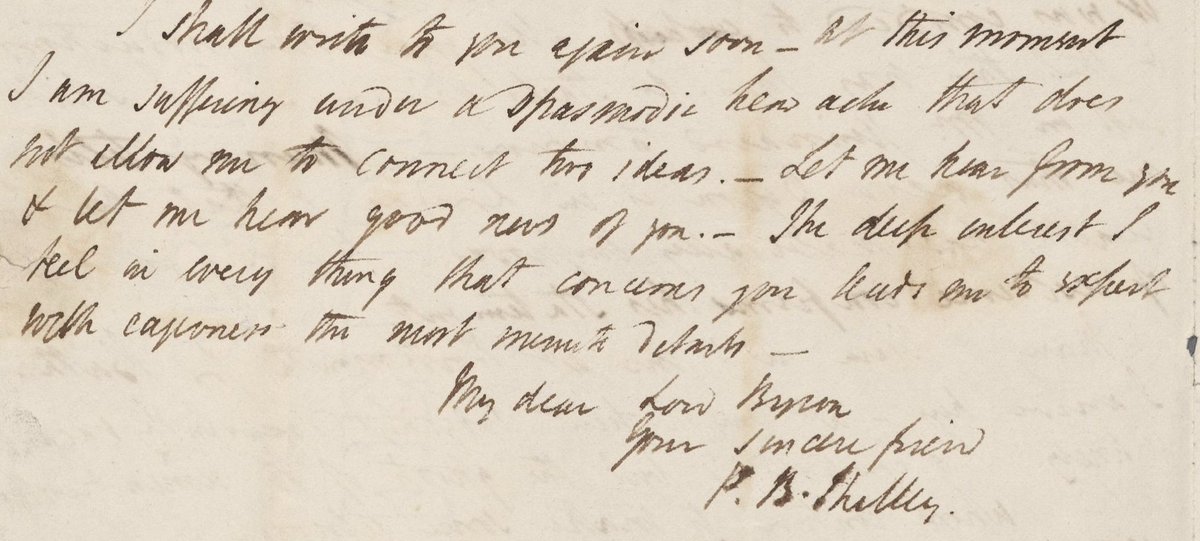 I shall write to you again soon – at this moment
I am suffering under a spasmodic head ache that does
not allow me to connect two ideas. – Let me hear from you
& let me hear good news of you. – The deep interest I
feel in every thing that concerns you leads me to expect
with eagerness the most minute details –
My dear Lord Byron
Your sincere friend
P. B. Shelley.